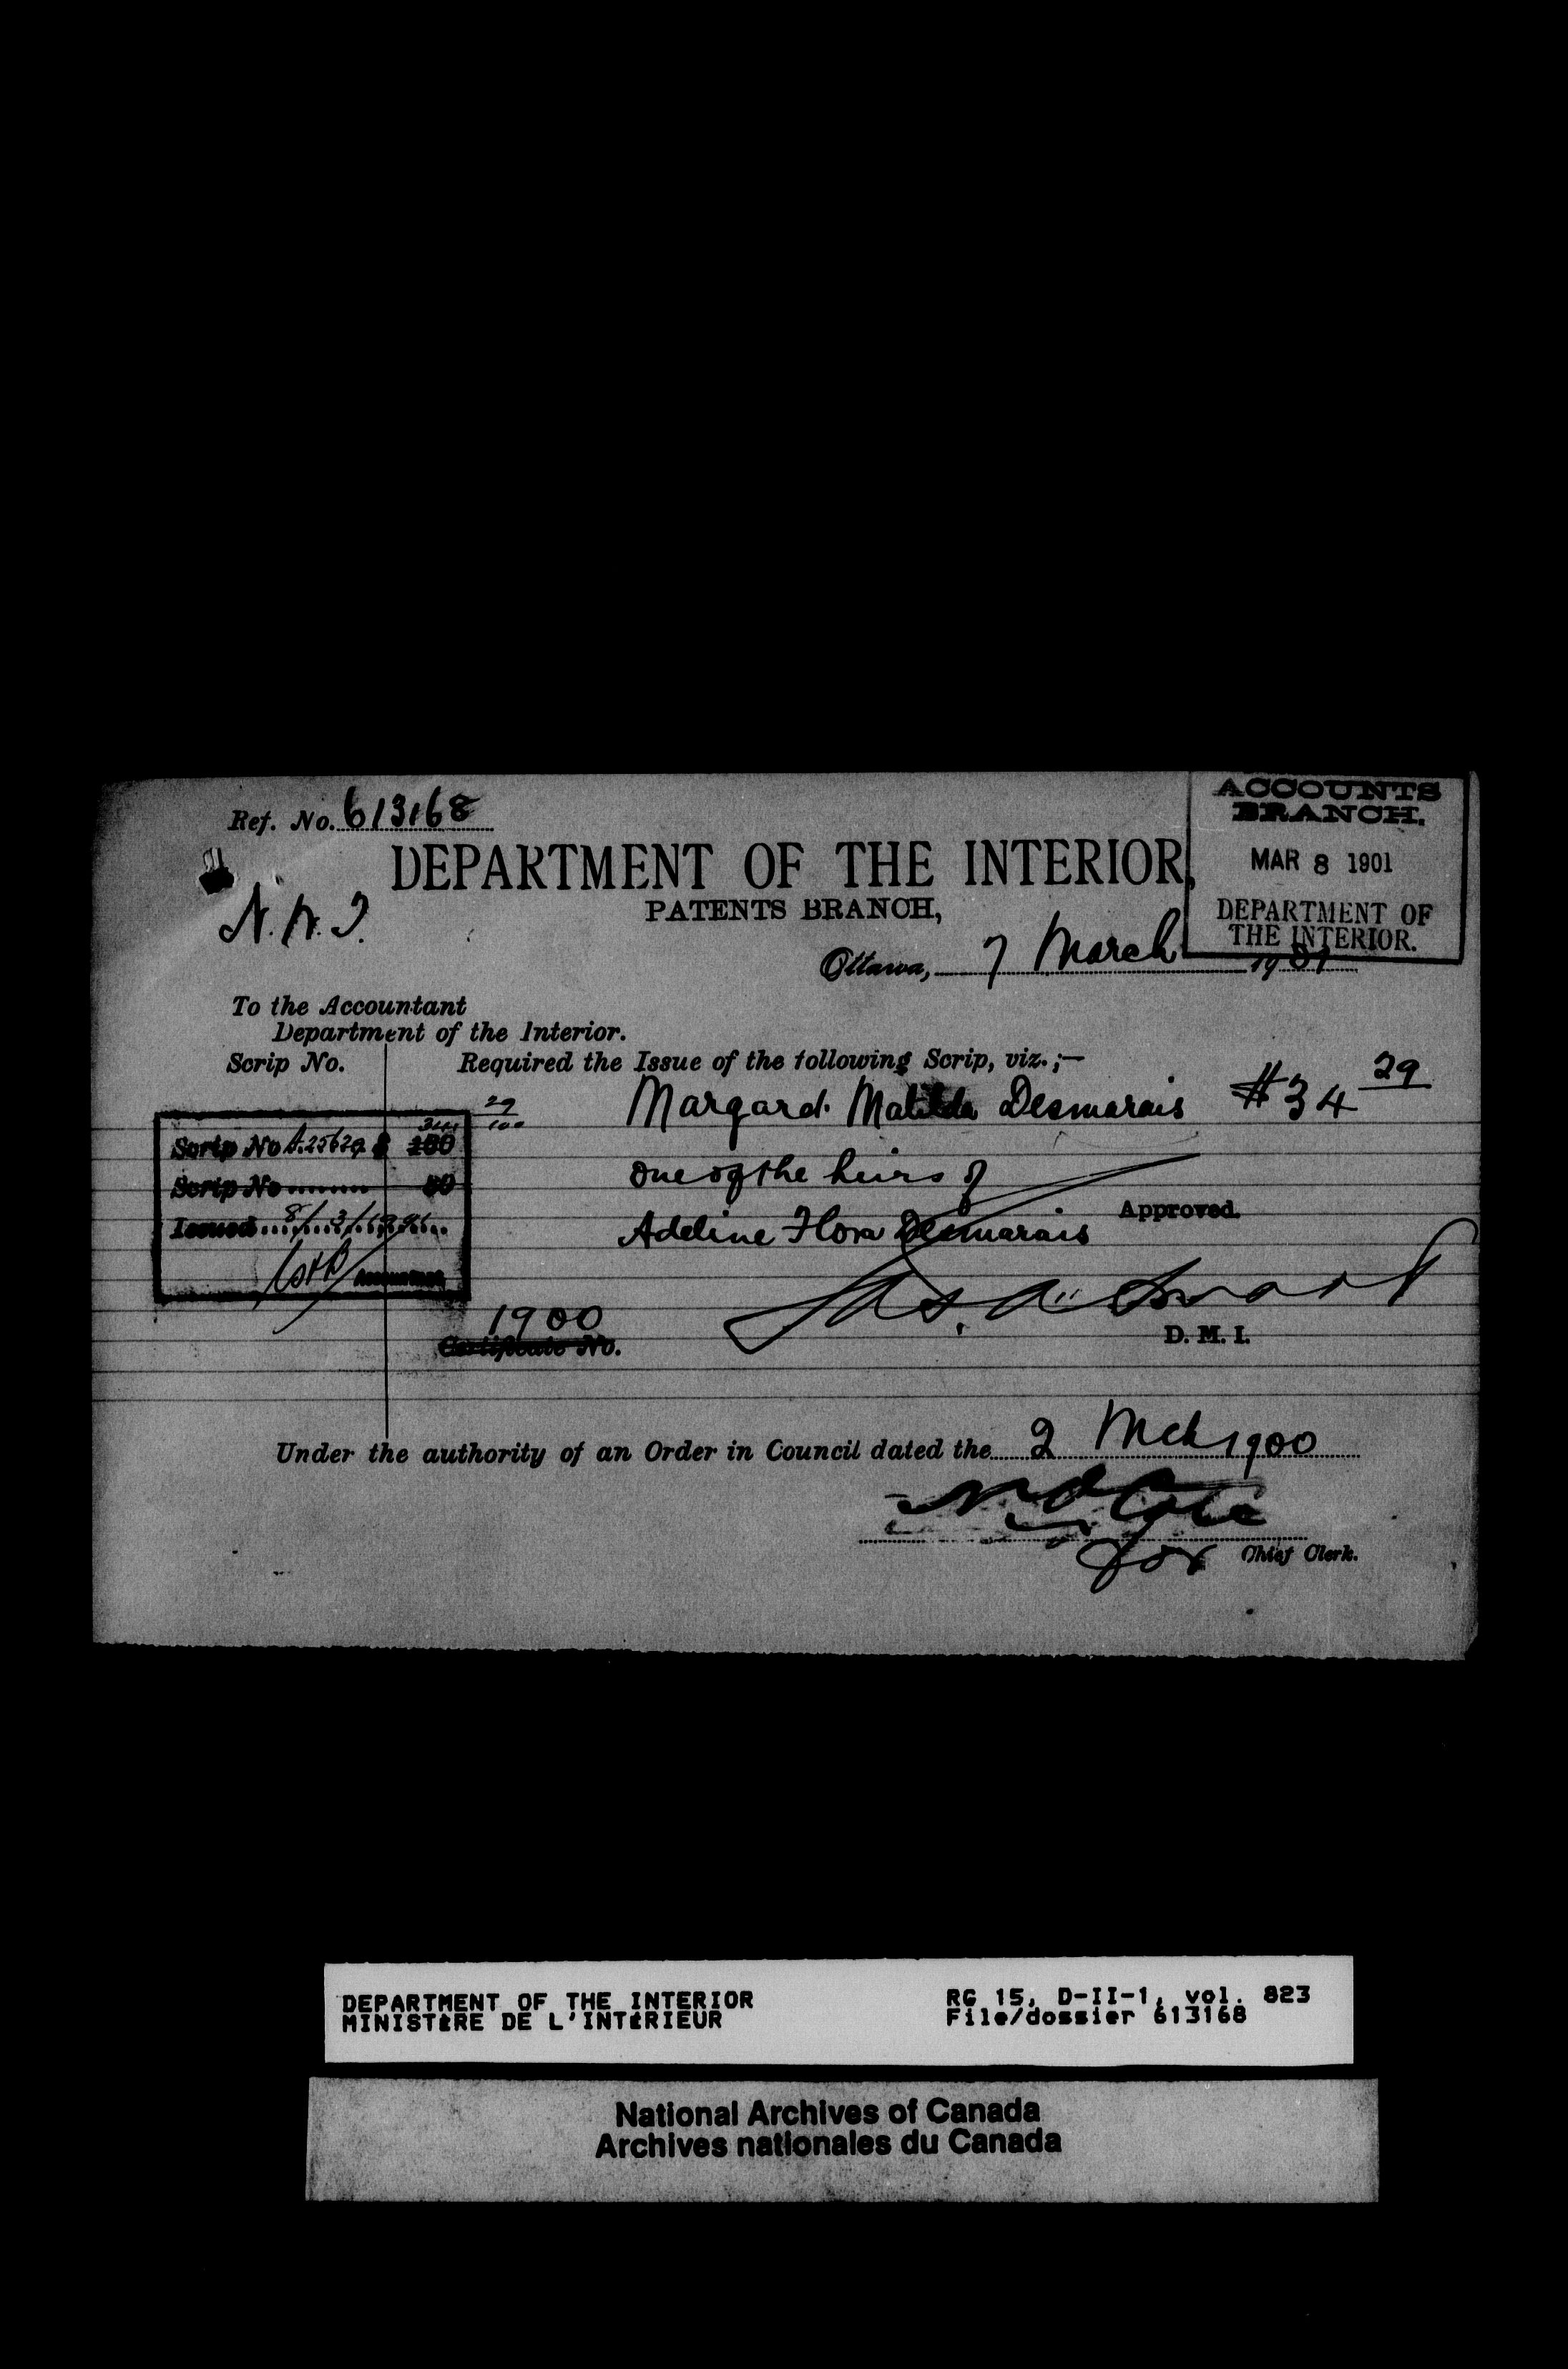 Ref. No. 613168
ACCOUNTS
BRANCH.
MAR 8 1901
DEPARTMENT OF
THE INTERIOR.
DEPARTMENT OF THE INTERIOR,
PATENTS BRANCH,
N.W.T.
Ottawa, 7 March 1901
To the Accountant
Department of the Interior.
Scrip No. Required the Issue of the following Scrip, viz.;—
Margard. Matilda Desmarais $34 29
one of the heirs of
Adeline Flora Desmarais
29
100
Scrip No A.25629 $ 160
Scrip No ....... 80
Issued 8/3/1901
Accountant
Approved.
Jas. A. Smart
D. M. I.
1900
Certificate No.
Under the authority of an Order in Council dated the 2 Mch 1900
N O Cote
for Chief Clerk.
DEPARTMENT OF THE INTERIOR
MINISTÈRE DE L'INTÉRIEUR
RG 15, D-II-1, vol. 823
File/dossier 613168
National Archives of Canada
Archives nationales du Canada